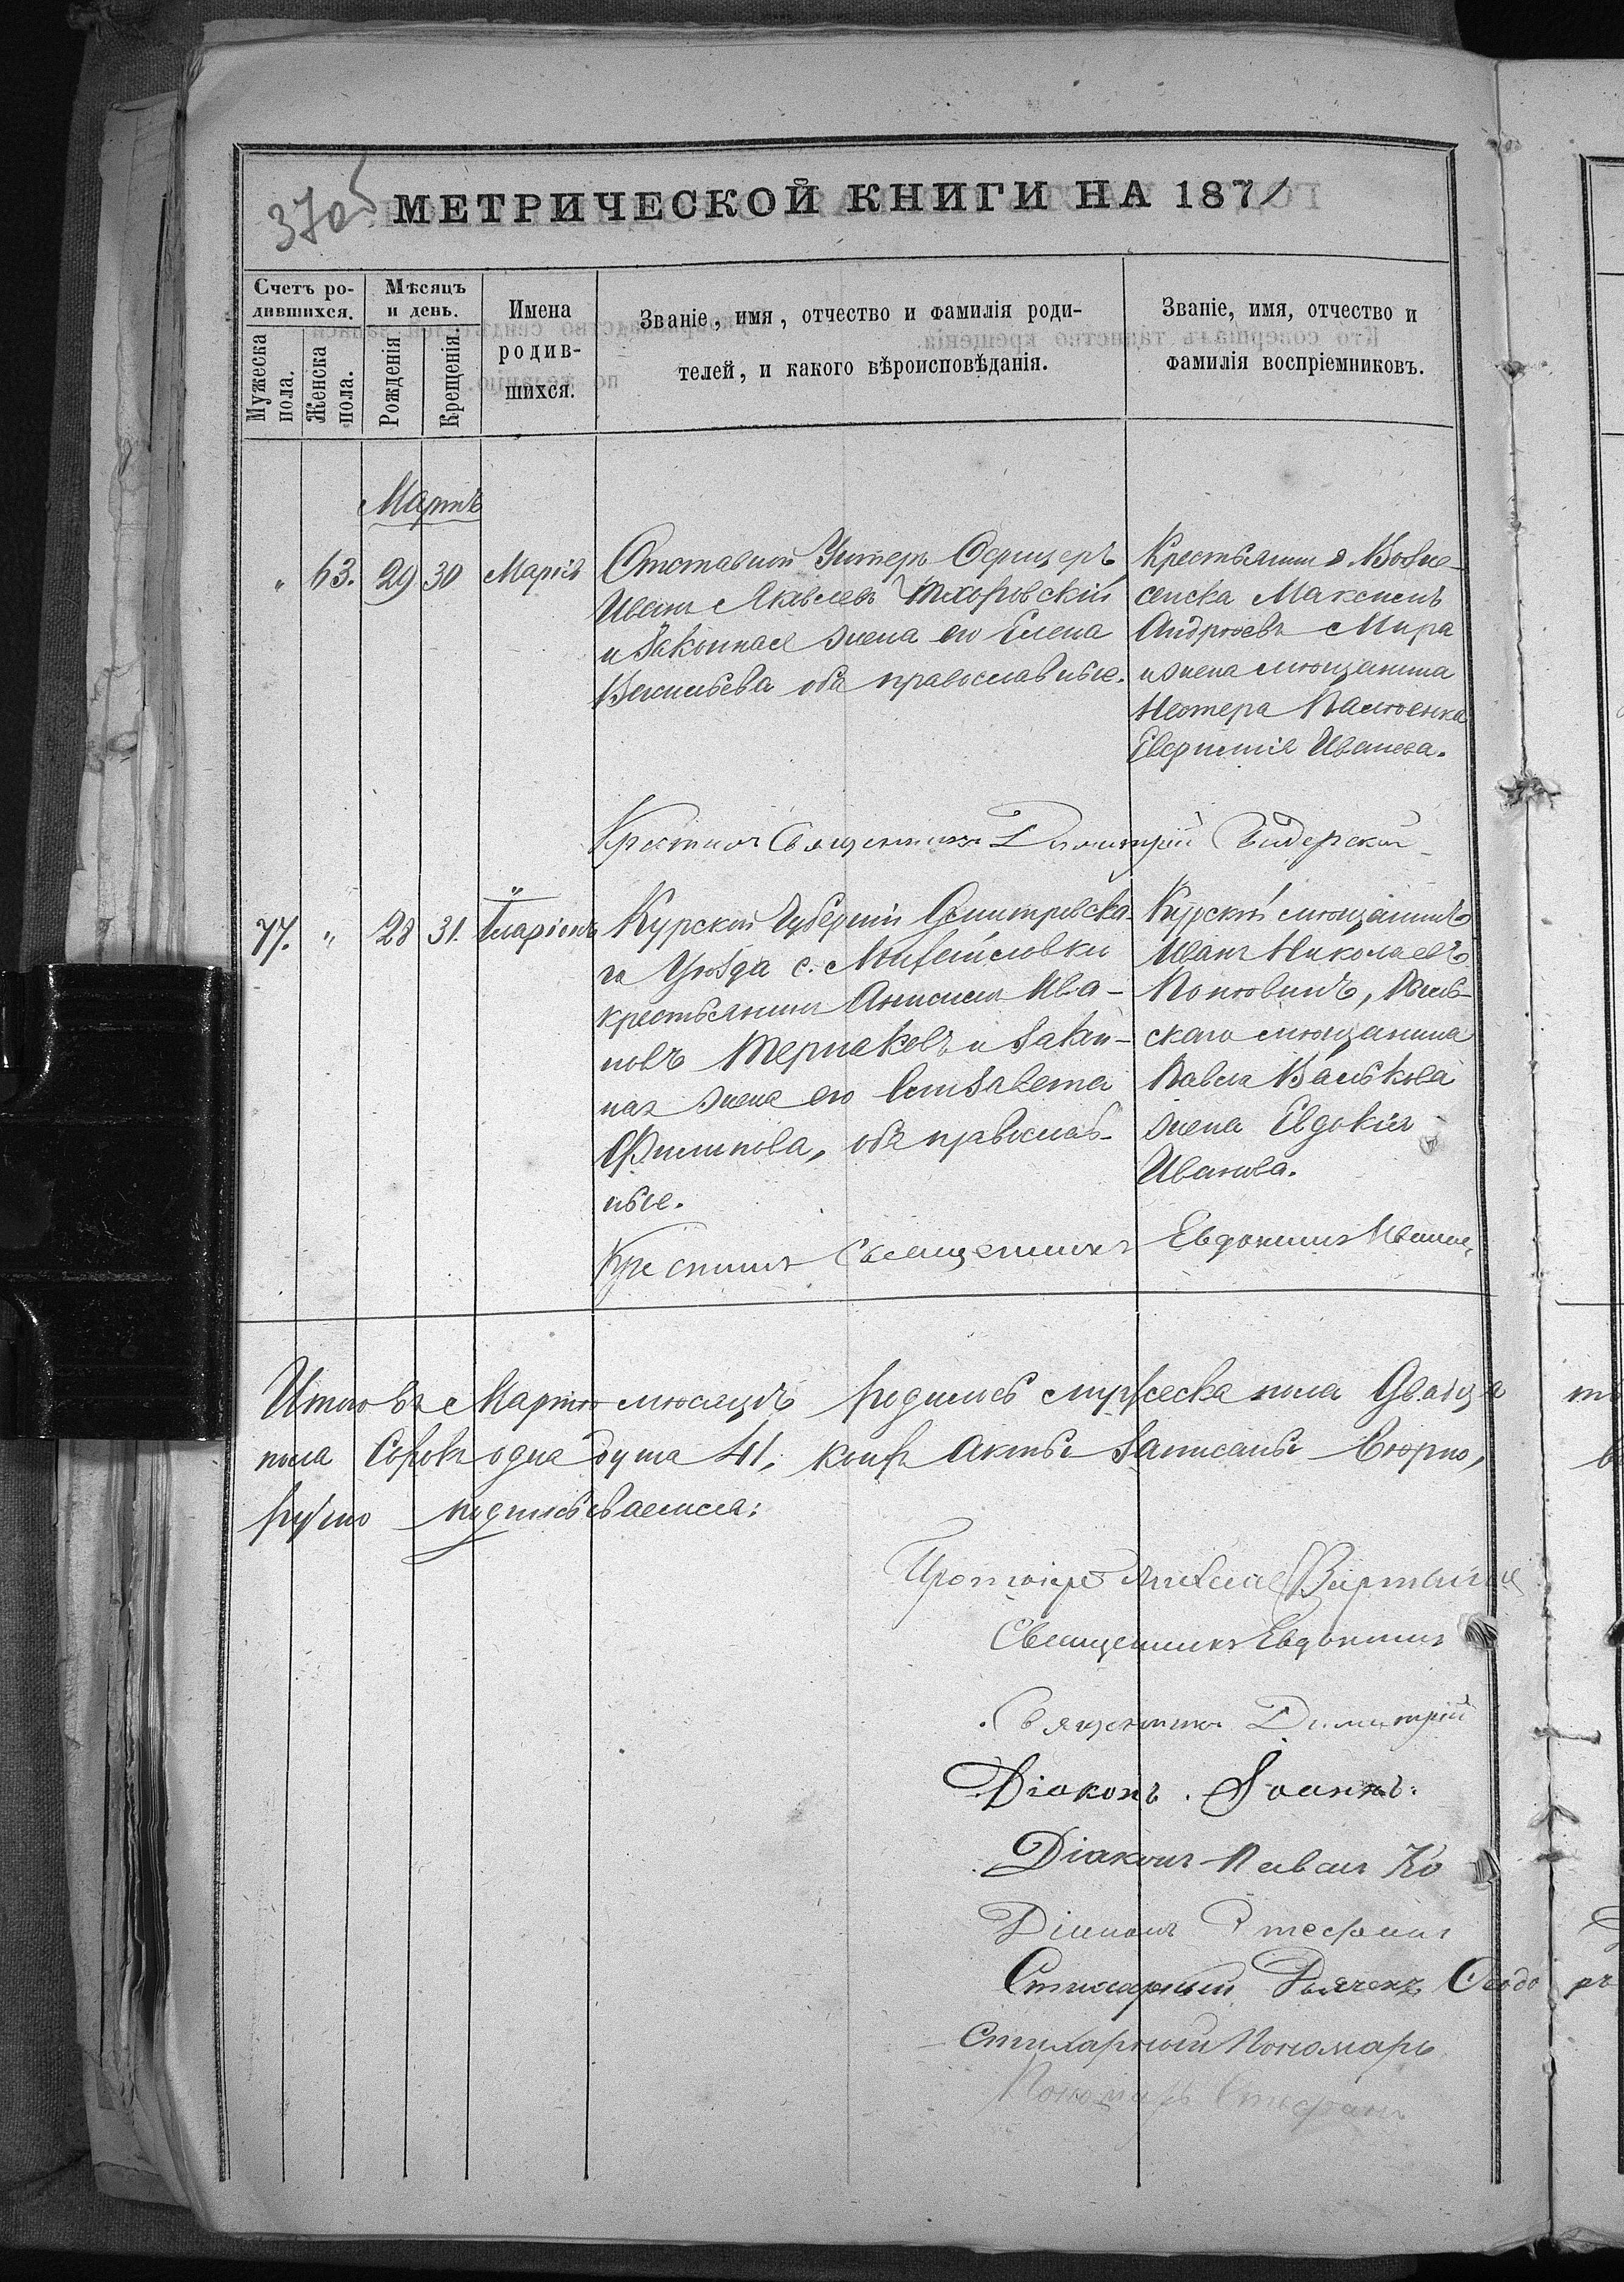 370об
МЕТРИЧЕСКОЙ КНИГИ НА 1871
Счетъ ро-
дившихся.
Мѣсяцъ
и день.
Мужеска
пола.
Женска
пола.
Рожденія
Крещенія.
Имена
родив-
шихся.
Званіе, имя, отчество и фамилія роди-
телей, и какого вѣроисповѣданія.
Званіе, имя, отчество и
фамилія воспріемниковъ.
Мартъ
" 63. 29 30 Марія
Отставной Унтеръ Офицеръ
Иванъ Яковлевъ Тхоровскій
и законная жена его Елена
Васильева оба православные.
Крестьянин г. Возне-
сенска Максимъ
Андреевъ Мира
и жена мѣщанина
Нестера
Евфимія Иванова.
Крестилъ Священникъ Димитрій
77. " 28 31. Иларіонъ
Курской Губерніи Дмитревска-
го Уѣзда с. Михайловки
крестьянинъ Анисимъ Ива-
новъ Термаковъ и закон-
ная жена его Елизавета
Филипова, оба православ-
ные.
Курскій мѣщанинъ
Иванъ Николаевъ
скаго мѣщанина
Павла Валькова
жена Евдокія
Иванова.
Крестилъ Священникъ Евдокимъ
Итого въ Мартѣ мѣсяцѣ родилось мужеска пола Двадца
пола Сорокъ одна душа 41, коихъ акты записаны вѣрно,
подписываемся:
Протоіерей
Священникъ Евдокимъ
Священникъ Димитрій
Діаконъ Іоаннъ
Діаконъ Павелъ Ко
Діаконъ Стефанъ
Стихарный Дьячекъ Ѳеодо ръ
Стихарный Пономарь
Пономарь Стефанъ